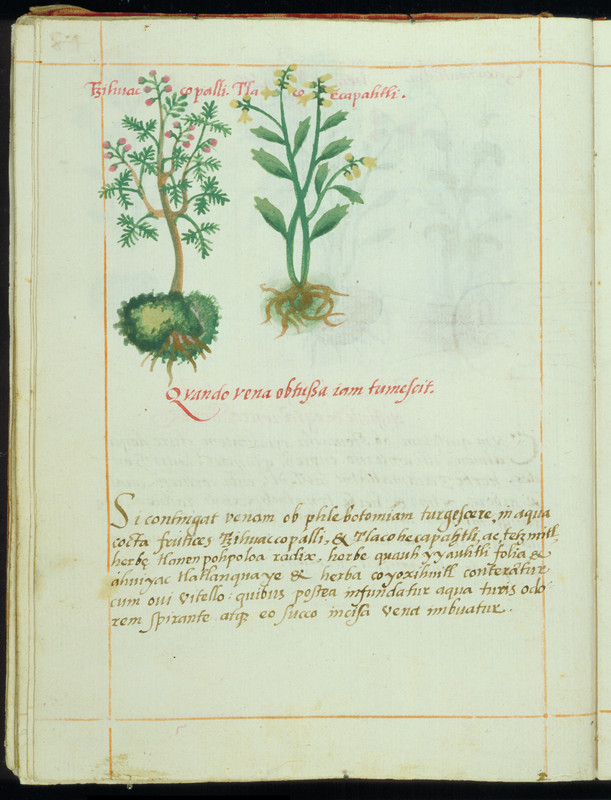 Tzihuac copalli. Tlaco ecapahtli.
Quando vena obtussa iam tumescit.
Si contingat venam ob phlebotomiam turgescere, in aqua
cocta frutices Tzihuaccopalli, & Tlacohecapahtli, ac tetzmitl,
herbę tlanen popoloa radix, herbę quauh yyauhtli folia &
ahuiyac tlatlanquaye & herba coyoxihuitl conterātur
cum oui vitello: quibus postea infundatur aqua turis odo-
rem spirante atque eo succo incisa vena imbuatur.